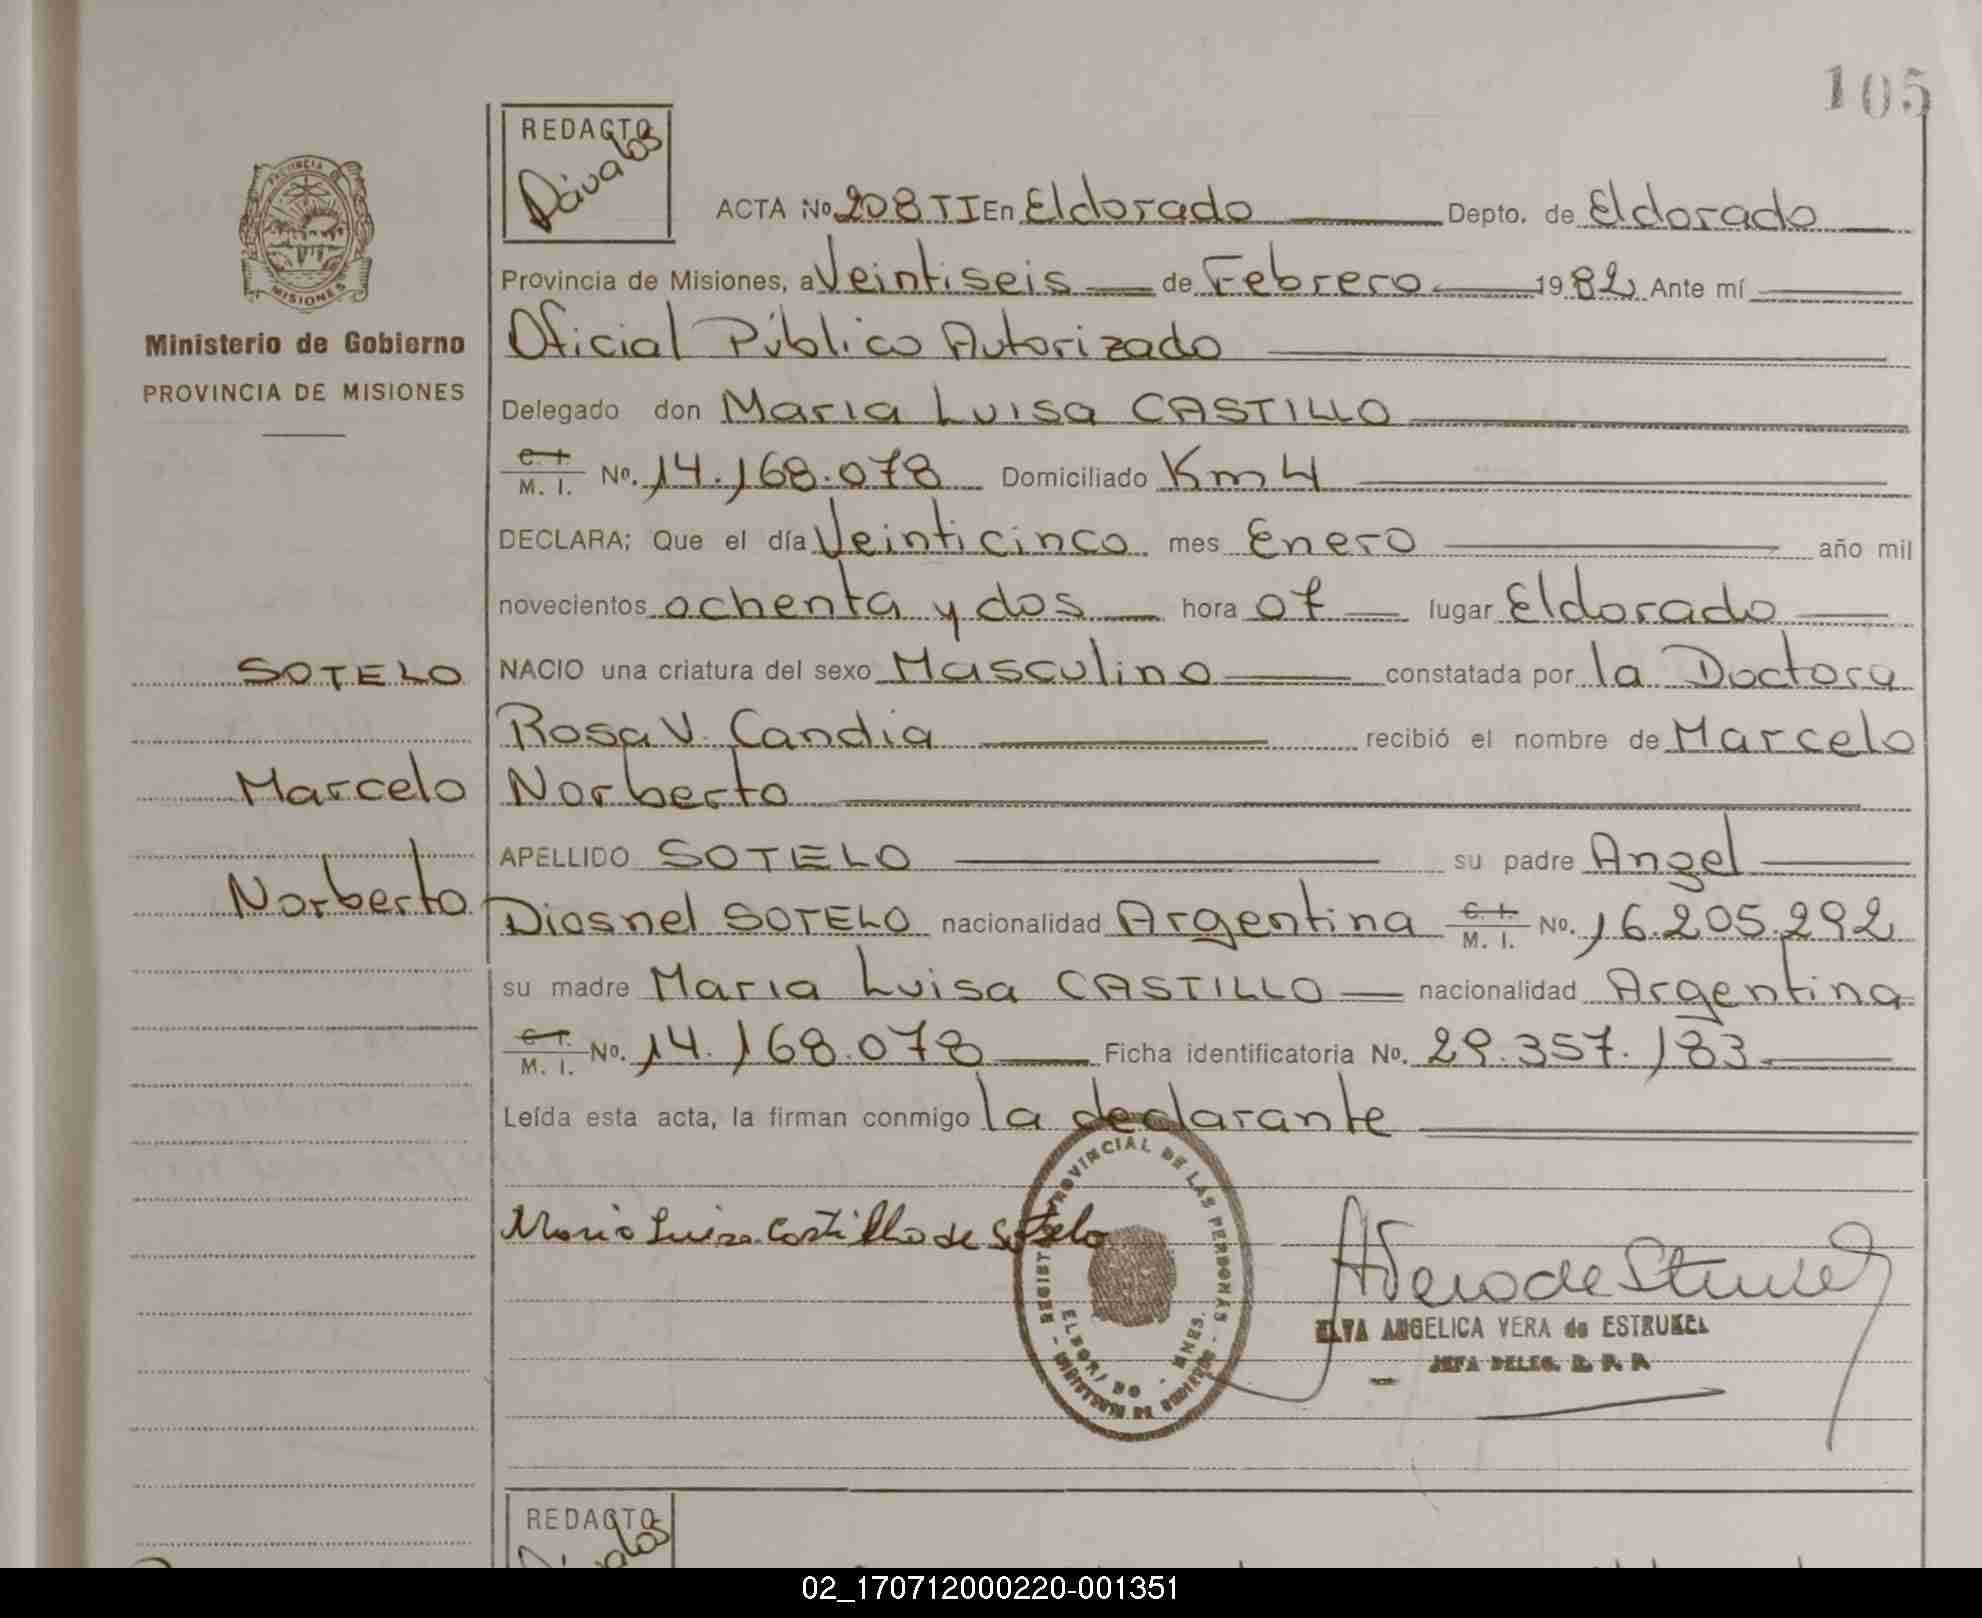 105
REDACTO
Dávalos
PROVINCIA
MISIONES
Ministerio de Gobierno
PROVINCIA DE MISIONES
ACTA No 208 II En Eldorado Depto. de Eldorado
Provincia de Misiones, a Veintiseis de Febrero 1982 Ante mí
Oficial Público Autorizado
Delegado don Maria Luisa CASTILLO
C. I. M. I. No. 14.168.078 Domiciliado Km 4
DECLARA; Que el día Veinticinco mes Enero año mil
novecientos ochenta y dos hora 07 lugar Eldorado
SOTELO NACIO una criatura del sexo Masculino constatada por la Doctora
Rosa V. Candia recibió el nombre de Marcelo
Marcelo Norberto
APELLIDO SOTELO su padre Angel
Norberto Diosnel SOTELO nacionalidad Argentina C. I. M. I. No. 16.205.292
su madre Maria Luisa CASTILLO nacionalidad Argentina
C. I. M. I. No. 14.168.078 Ficha identificatoria No. 29.357.183
Leída esta acta, la firman conmigo la declarante
REGISTRO PROVINCIAL DE LAS PERSONAS
Maria Luisa Castillo de Sotelo
ELVA ANGELICA VERA de ESTRUKEL
JEFA DELEG. R. P. P.
MNES.
MINISTERIO DE GOBIERNO
REDACTO
Dávalos
02_170712000220-001351